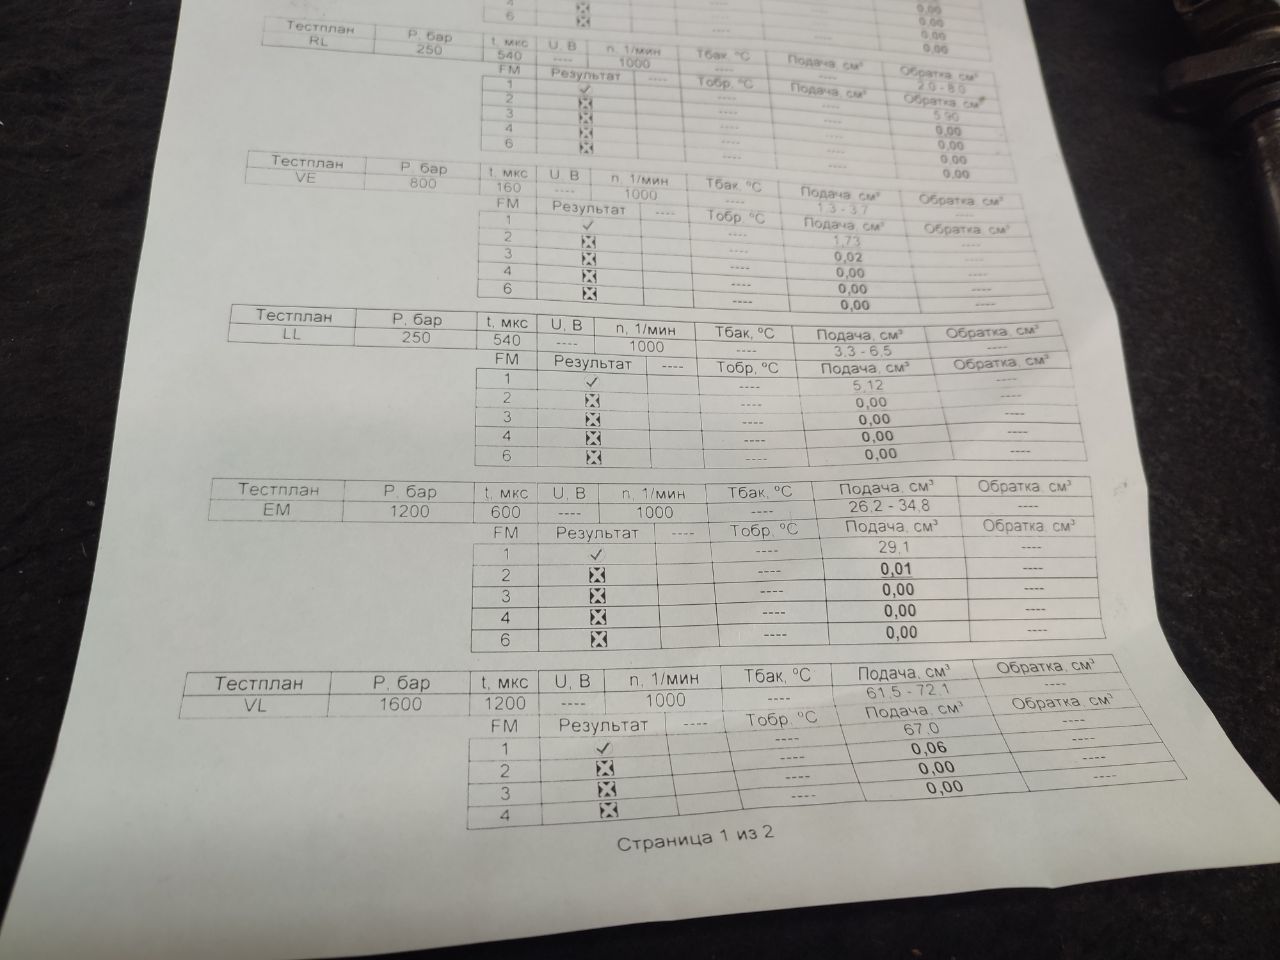 4 ---- ---- 0,00
6 ---- ---- 0,00
0,00
0,00
Тестплан Р, бар t, мкс U, В n, 1/мин Тбак, °С Подача, см³ Обратка, см³
RL 250 540 ---- 1000 ---- ---- 2,0 - 8,0
FM Результат ---- Тобр, °С Подача, см³ Обратка, см³
1 ✓ ---- ---- 5,90
2 ---- ---- 0,00
3 ---- ---- 0,00
4 ---- ---- 0,00
6 ---- ---- 0,00
Тестплан Р, бар t, мкс U, В n, 1/мин Тбак, °С Подача, см³ Обратка, см³
VE 800 160 ---- 1000 ---- 1,3 - 3,7 ----
FM Результат ---- Тобр, °С Подача, см³ Обратка, см³
1 ✓ ---- 1,73 ----
2 ---- 0,02 ----
3 ---- 0,00 ----
4 ---- 0,00 ----
6 ---- 0,00 ----
Тестплан Р, бар t, мкс U, В n, 1/мин Тбак, °С Подача, см³ Обратка, см³
LL 250 540 ---- 1000 ---- 3,3 - 6,5 ----
FM Результат ---- Тобр, °С Подача, см³ Обратка, см³
1 ✓ ---- 5,12 ----
2 ---- 0,00 ----
3 ---- 0,00 ----
4 ---- 0,00 ----
6 ---- 0,00 ----
Тестплан Р, бар t, мкс U, В n, 1/мин Тбак, °С Подача, см³ Обратка, см³
EM 1200 600 ---- 1000 ---- 26,2 - 34,8 ----
FM Результат ---- Тобр, °С Подача, см³ Обратка, см³
1 ✓ ---- 29,1 ----
2 ---- 0,01 ----
3 ---- 0,00 ----
4 ---- 0,00 ----
6 ---- 0,00 ----
Тестплан Р, бар t, мкс U, В n, 1/мин Тбак, °С Подача, см³ Обратка, см³
VL 1600 1200 ---- 1000 ---- 61,5 - 72,1 ----
FM Результат ---- Тобр, °С Подача, см³ Обратка, см³
1 ✓ ---- 67,0 ----
2 ---- 0,06 ----
3 ---- 0,00 ----
4 ---- 0,00 ----
Страница 1 из 2